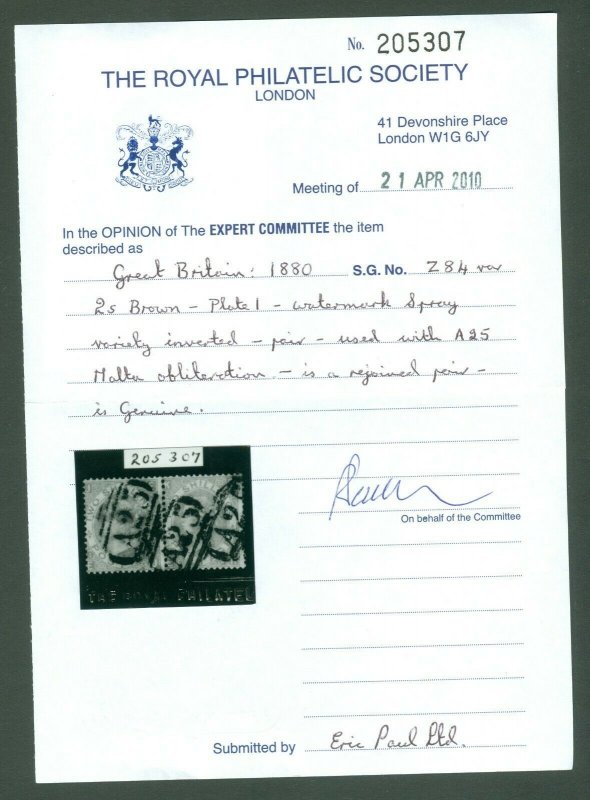 No. 205307
THE ROYAL PHILATELIC SOCIETY
LONDON
41 Devonshire Place
London W1G 6JY
Meeting of 21 APR 2010
In the OPINION of The EXPERT COMMITTEE the item
described as
Great Britain: 1880 S.G. No. Z84 var
2s Brown - Plate 1 - watermark Spray
variety inverted - pair - used with A25
Malta obliteration - is a rejoined pair -
is Genuine.
205 307
A25 A25 A25
THE ROYAL PHILATEL
On behalf of the Committee
Submitted by Eric Paul Ltd.